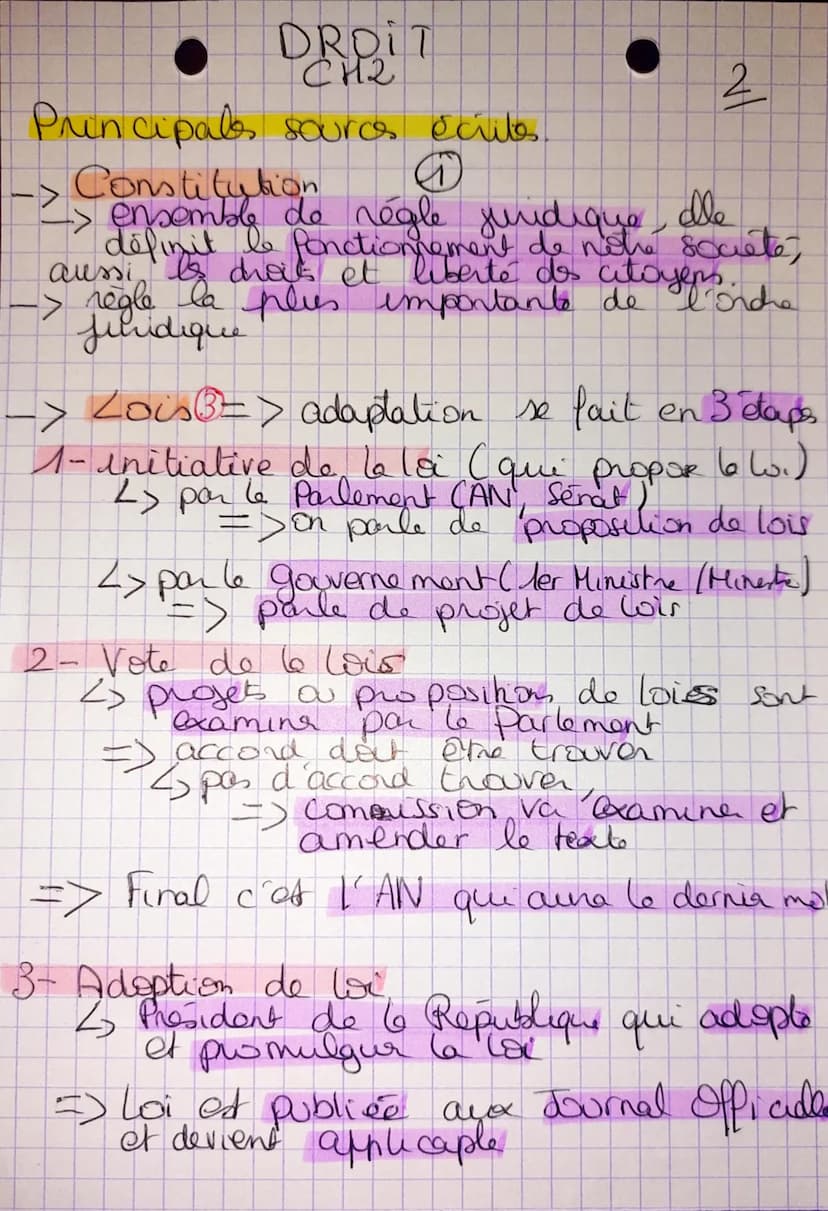 DROIT
CH2
2
Principales sources écrites.
-> Constitution ①
-> ensemble de règle juridique, elle
définit le fonctionnement de notre société,
aussi les droits et liberté des citoyens.
-> règle la plus importante de l'ordre
juridique
-> Lois ③ => adaptation se fait en 3 étapes
1- initiative de la loi (qui propose la loi)
↳ par le Parlement (AN, Sénat)
=> on parle de proposition de lois
↳ par le gouvernement (1er Ministre / Ministre)
=> parle de projet de lois
2- Vote de la lois
↳ projets ou proposition de loies sont
examiner par le Parlement
=> accord doit être trouver
↳ pas d'accord trouver,
=> commission va examiner et
amender le texte
=> Final c'est l'AN qui aura le dernier mot
3- Adoption de loi
↳ Président de la République qui adopte
et promulguer la loi
=> Loi est publiée aux Journal Officielle
et devient applicaple